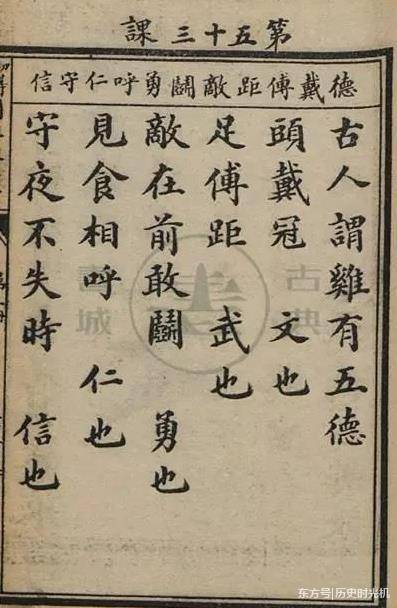 第五十三課
德戴傅距敵鬭勇呼仁守信
古人謂雞有五德
頭戴冠 文也
足傅距 武也
敵在前敢鬭 勇也
見食相呼 仁也
守夜不失時 信也
古典
書城
东方号|历史时光机